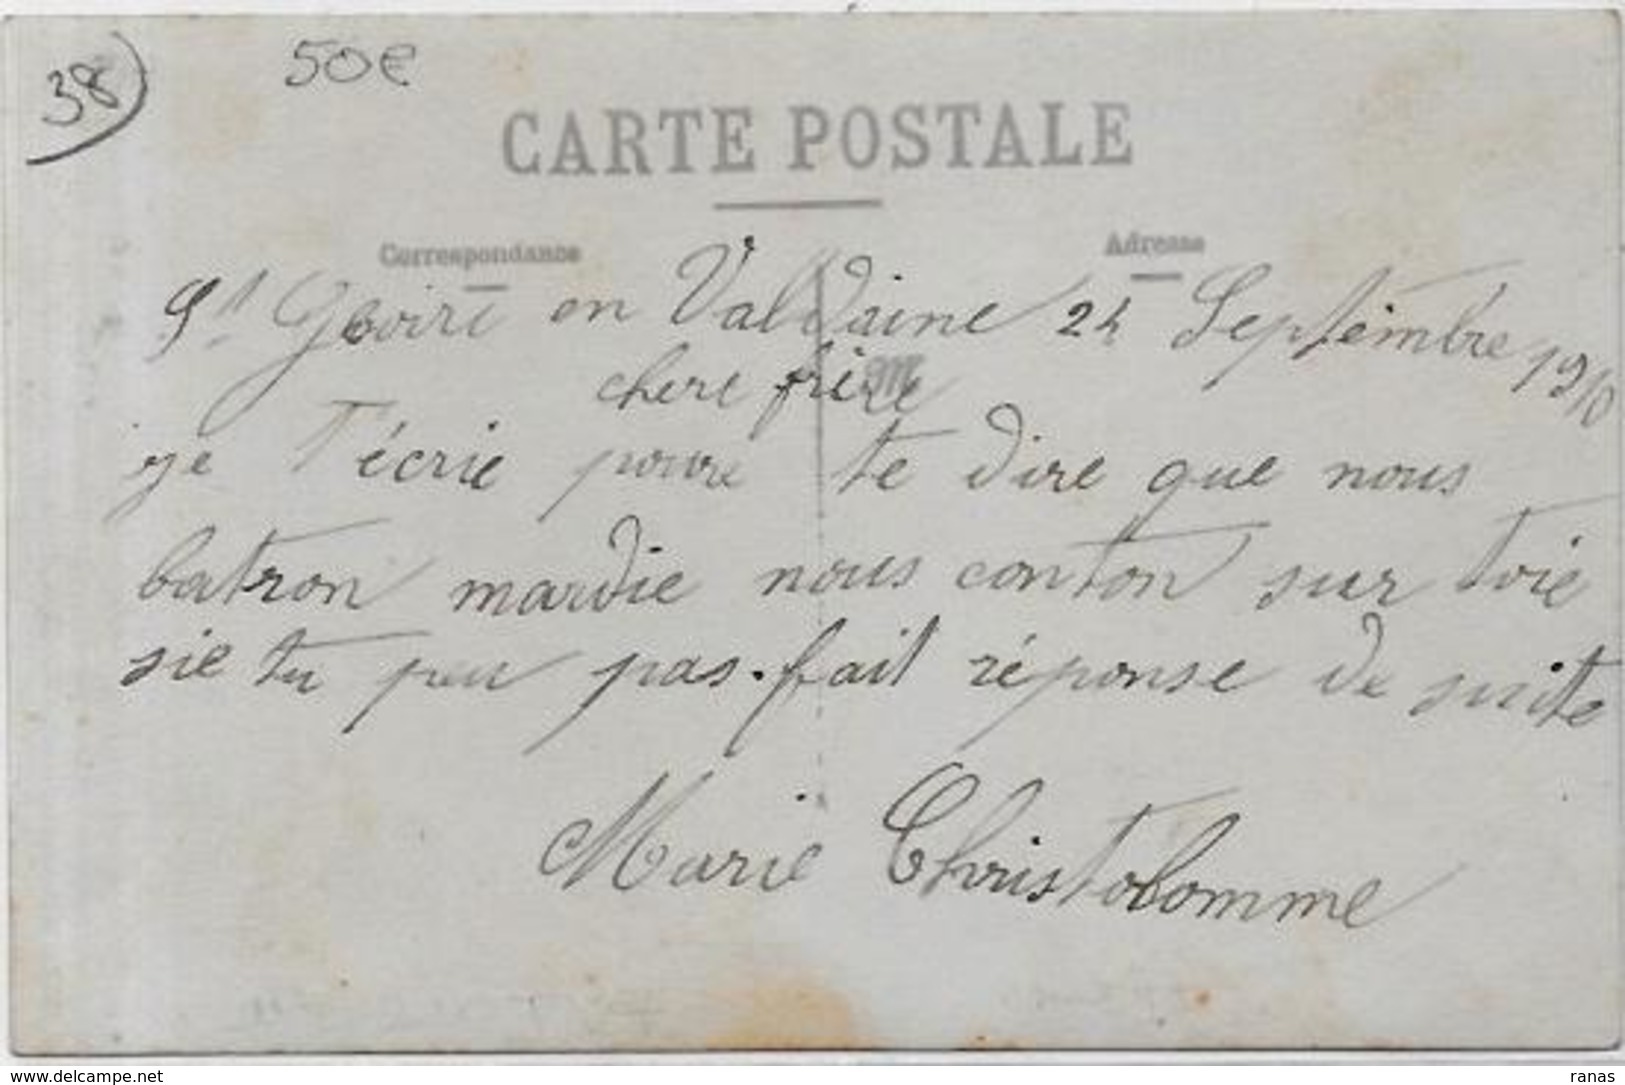 38
50€
CARTE POSTALE
Correspondance
Adresse
St Geoire en Valdaine 24 Septembre 1910
chere frère
je t'écrie poure te dire que nous
batron mardie nous conton sur toie
sie tu peu pas. fait réponse de suite
Marie Christolomme
www.delcampe.net
ranas